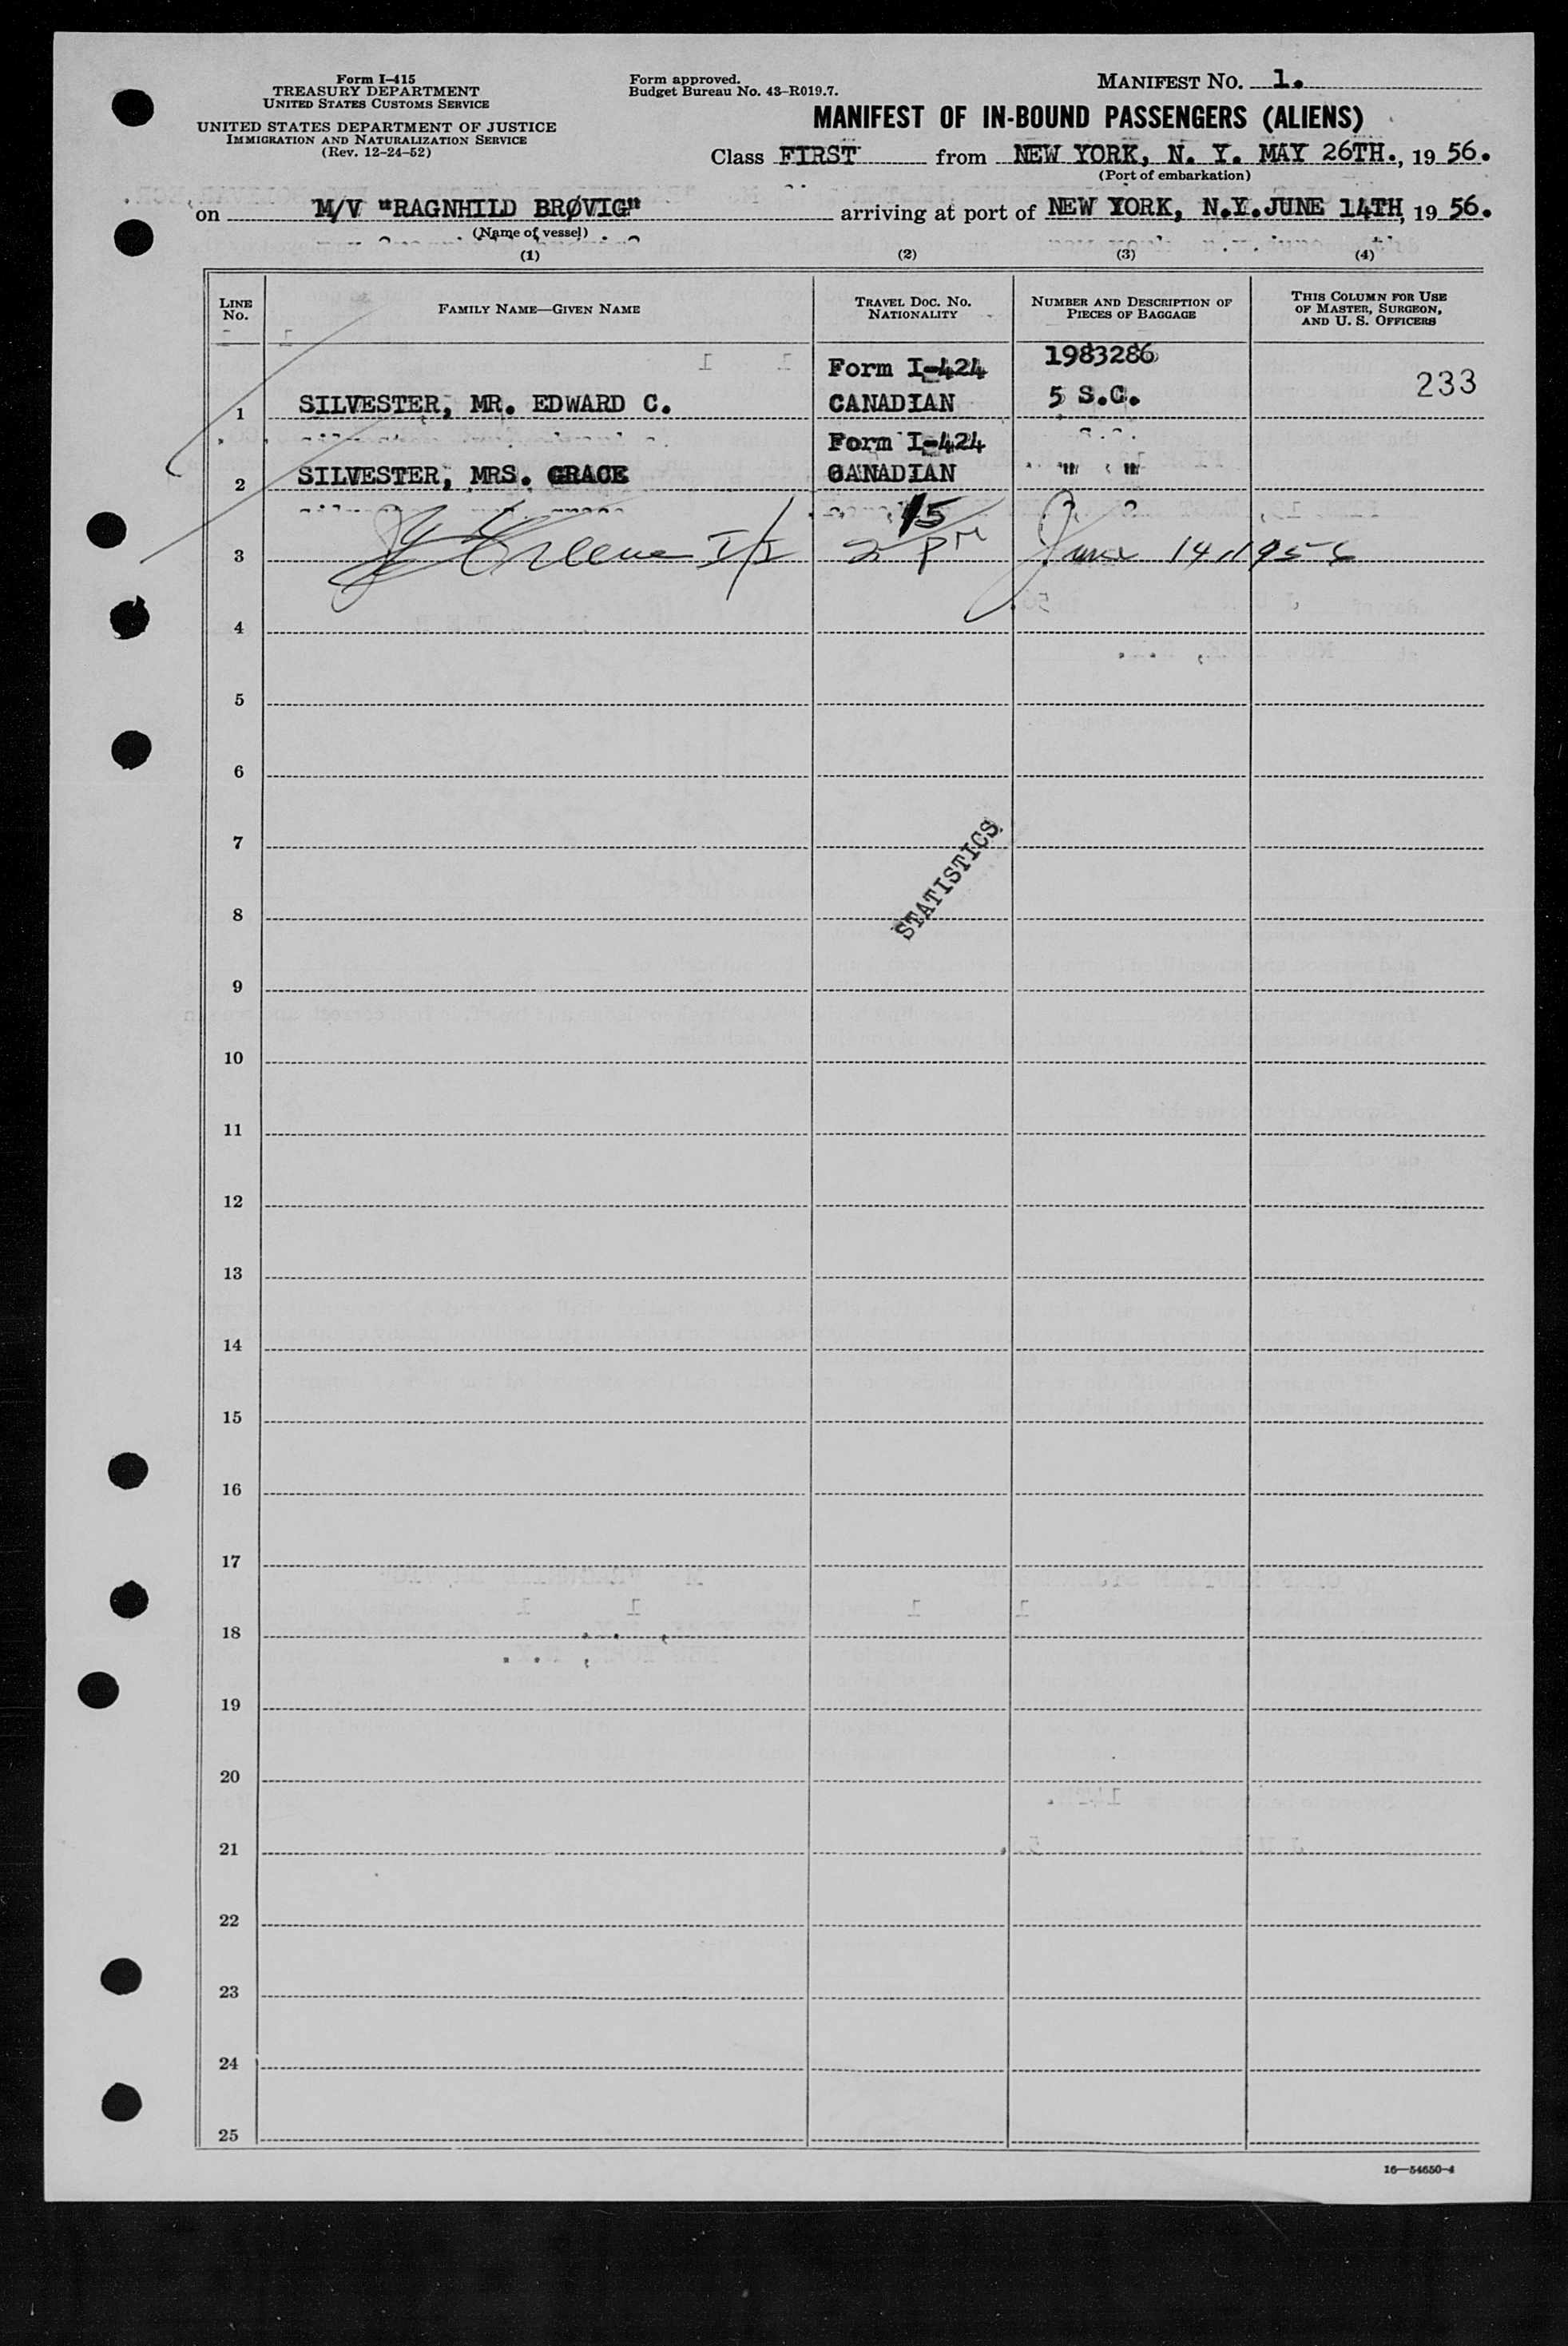 Form I-415
TREASURY DEPARTMENT
UNITED STATES CUSTOMS SERVICE
UNITED STATES DEPARTMENT OF JUSTICE
IMMIGRATION AND NATURALIZATION SERVICE
(Rev. 12-24-52)
Form approved.
Budget Bureau No. 43-R019.7.
MANIFEST NO. 1.
MANIFEST OF IN-BOUND PASSENGERS (ALIENS)
Class FIRST from NEW YORK, N. Y. MAY 26TH., 19 56.
(Port of embarkation)
on M/V "RAGNHILD BRØVIG" arriving at port of NEW YORK, N.Y. JUNE 14TH, 19 56.
(Name of vessel)
(1) (2) (3) (4)
LINE NO. FAMILY NAME—GIVEN NAME TRAVEL DOC. NO. NATIONALITY NUMBER AND DESCRIPTION OF PIECES OF BAGGAGE THIS COLUMN FOR USE OF MASTER, SURGEON, AND U. S. OFFICERS
Form I-424 1983286
1 SILVESTER, MR. EDWARD C. CANADIAN 5 S.C. 233
Form I-424
2 SILVESTER, MRS. GRACE CANADIAN " "
3 Greene I/I 2 15 PM June 14, 1956
4
5
6
7
STATISTICS
8
9
10
11
12
13
14
15
16
17
18
19
20
21
22
23
24
25
16—54650-4